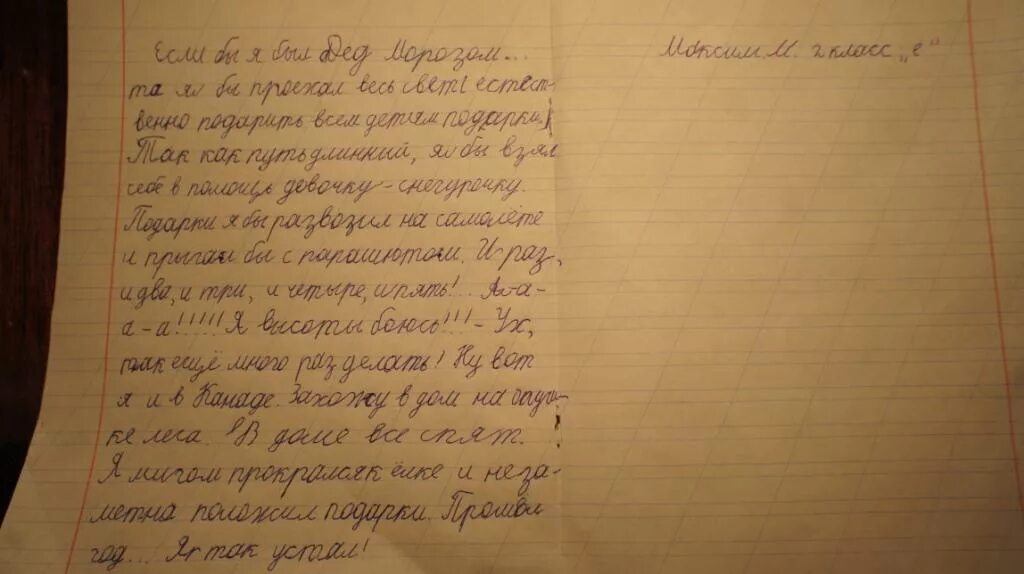 Если бы я был Дед Морозом...
Максим. М. 2 класс „е"
та я бы проехал весь свет( естест-
венно подарить всем детям подарки)
Так как путь длинный, я бы взял
себе в помощь девочку - снегурочку.
Подарки я бы развозил на самолёте
и прыгал бы с парашютом. И раз,
и два, и три, и четыре, и пять!... А-а-
а-а!!!!! Я высоты боюсь!!! - Ух,
так ещё много раз делать! Ну вот
я и в Канаде. Захожу в дом на опуш-
ке леса. В доме все спят.
Я мигом прокрался к ёлке и неза-
метна положил подарки. Прошёл
год... Я так устал!